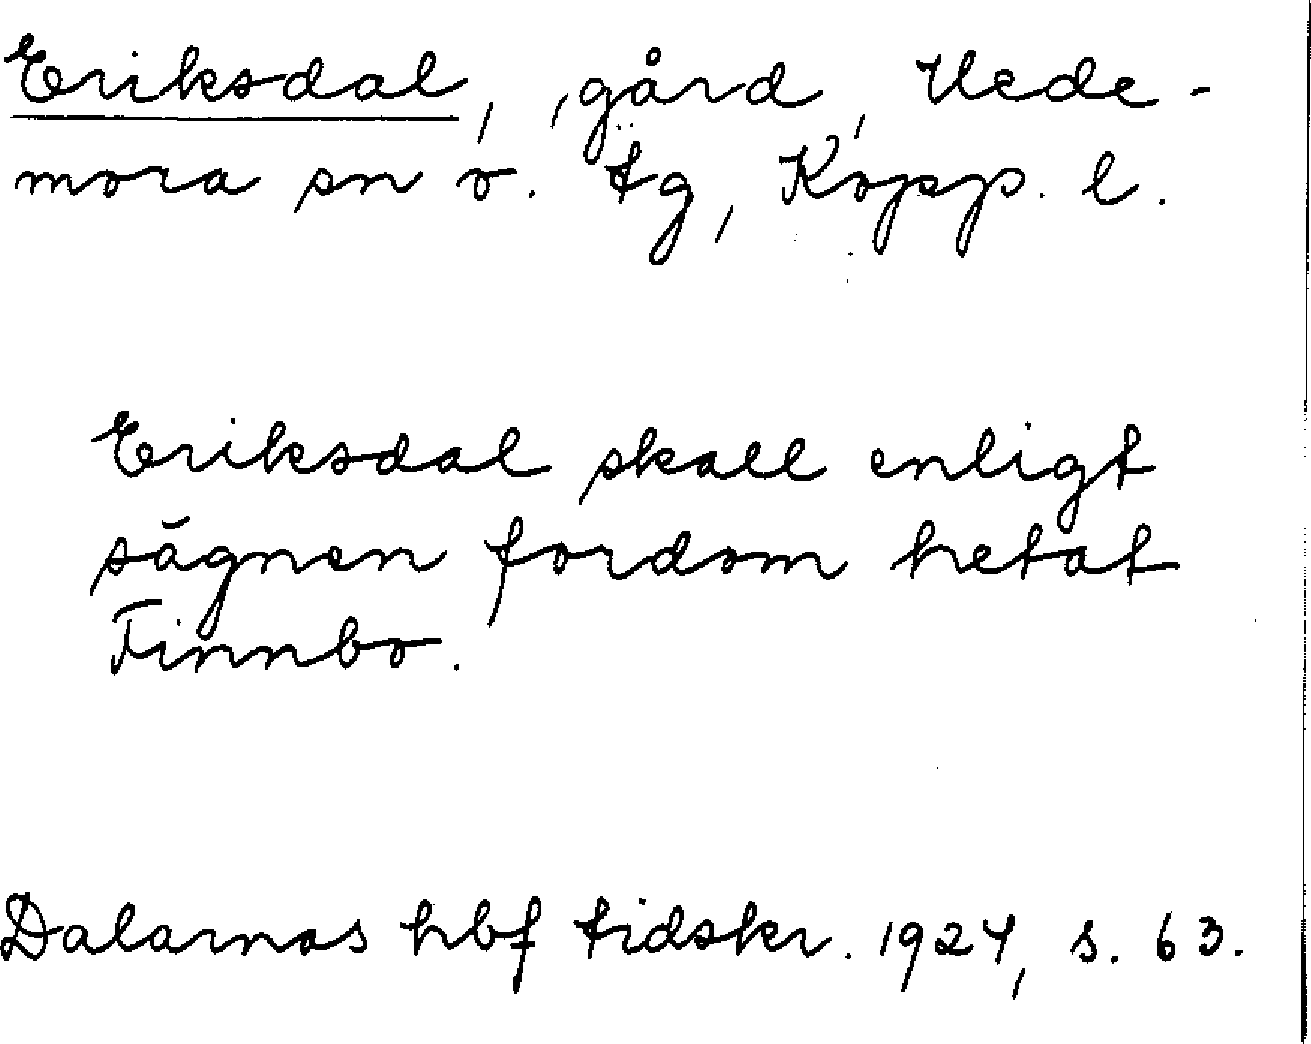 Eriksdal, gård, Hede-
mora sn o. tg, Kopp. l.
Eriksdal skall enligt
sägnen fordom hetat
Finnbo.
Dalarnas hbf tidskr. 1924, s. 63.